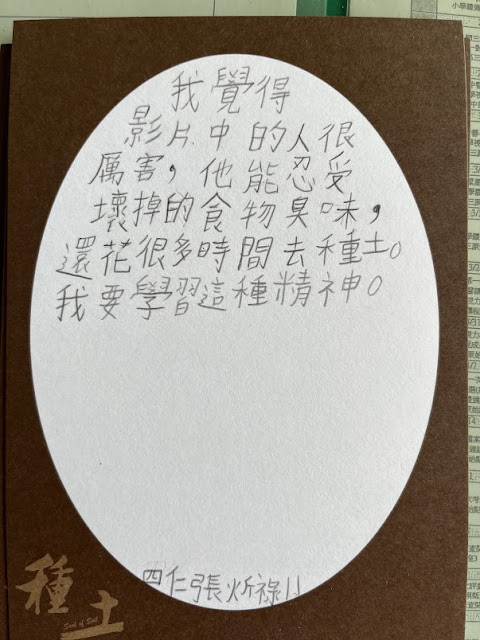 我覺得
影片中的人很
厲害,他能忍受
壞掉的食物臭味,
還花很多時間去種土。
我要學習這種精神。
四仁張炘祿11
種土
Soul of Soil